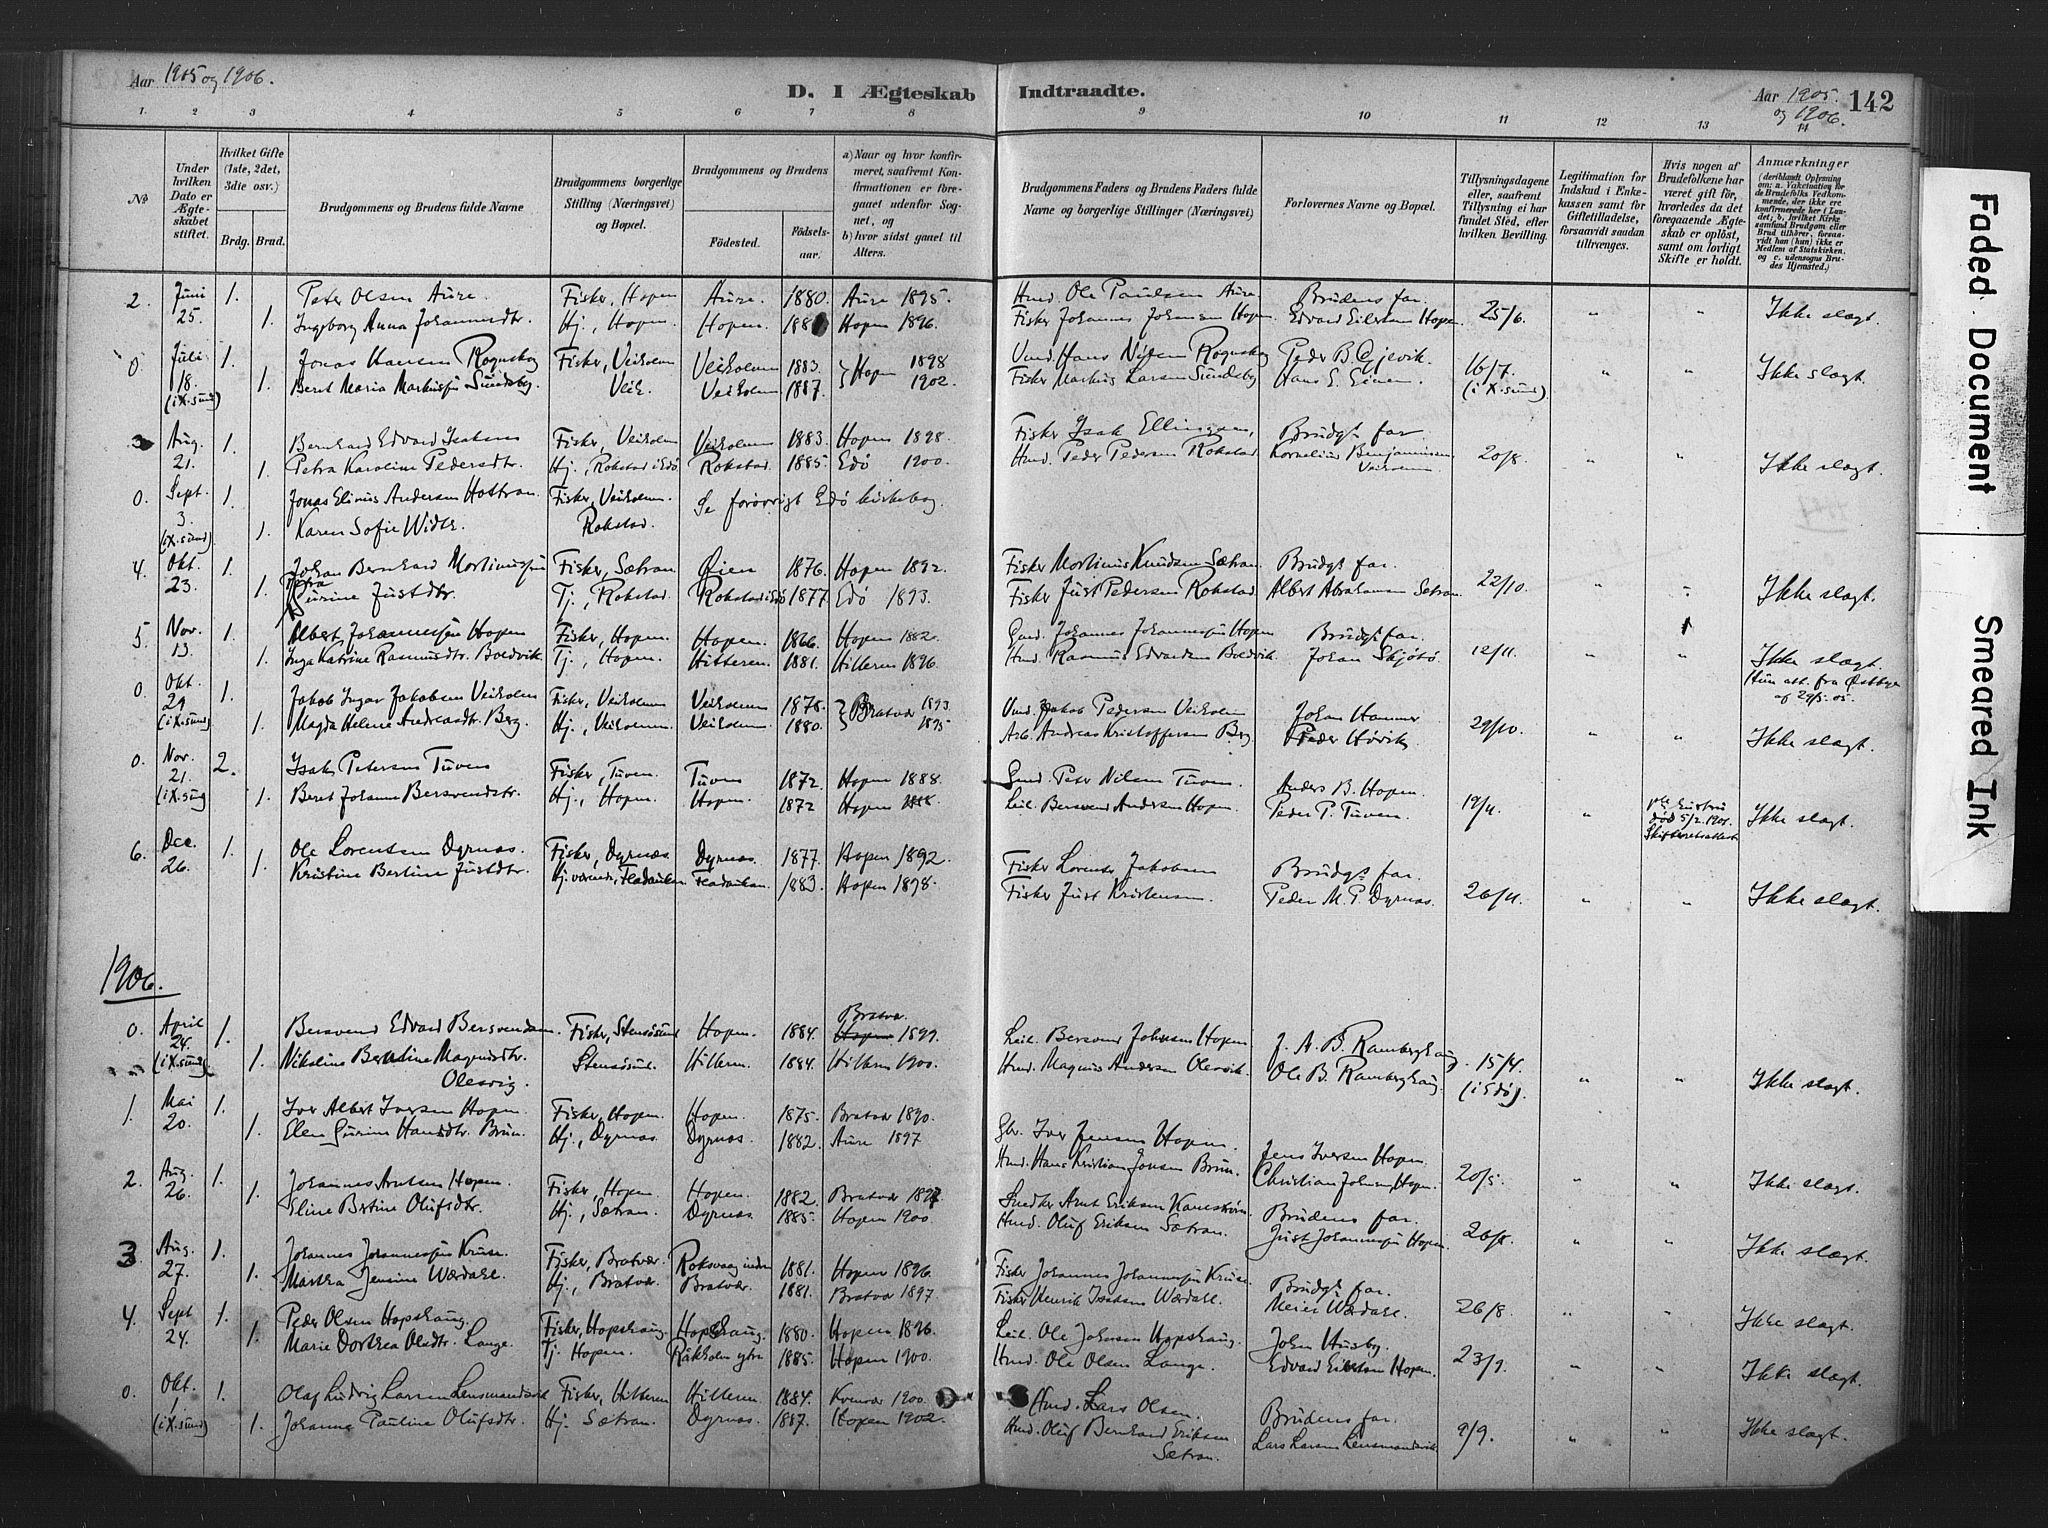 Aar 1905 og 1906.
D. I Ægteskab Indtraadte.
Aar 1905. og 1906.
142
1. 2 3 4 5 6 7 8 9 10 11 12 13 14
No
Under hvilken Dato er Ægteskabet stiftet.
Hvilket Gifte (1ste, 2det, 3die osv.)
Brdg. Brud.
Brudgommens og Brudens fulde Navne
Brudgommens borgerlige Stilling (Næringsvei) og Bopæl.
Brudgommens og Brudens
Fødested. Fødselsaar.
a) Naar og hvor konfirmeret, saafremt Konfirmationen er foregaaet udenfor Sognet, og
b) hvor sidst gaaet til Alters.
Brudgommens Faders og Brudens Faders fulde Navne og borgerlige Stillinger (Næringsvei)
Forlovernes Navne og Bopæl.
Tillysningsdagene eller, saafremt Tillysning ei har fundet Sted, efter hvilken Bevilling.
Legitimation for Indskud i Enkekassen samt for Giftetilladelse, forsaavidt saadan tiltrænges.
Hvis nogen af Brudefolkene har været gift før, hvorledes da det foregaaende Ægteskab er opløst, samt om lovligt Skifte er holdt.
Anmærkninger (deriblandt Oplysning om: a. Vakcination for de Brudefolks Vedkommende, der ikke ere konfirmerede her i Landet, b. hvilket Kirkesamfund Brudgom eller Brud tilhører, forsaavidt han (hun) ikke er Medlem af Statskirken, og c. udensogns Brudes Hjemsted.)
2. Juni 25. 1. Peter Olsen Aure. Fisker, Hopen Aure. 1880. Aure 1895. Hmd. Ole Paulsen Aure. Brudens far. 25/6. " " Ikke slægt.
1. Ingeborg Anna Johannesdtr. Hj., Hopen. Hopen. Hopen 1896. Fisker Johannes Johansen Hopen. Edvard Eilertsen Hopen.
0. Juli 18. (i X.sund) 1. Jonas Hansen Rognskog Fisker, Veiholm Veiholmen 1883. Hopen 1898 Hans Rognskog Peder B. Gjevik. 16/7. (i X.sund) " " Ikke slægt.
1. Beret Maria Markusdtr Sundsbø. Veih. Veiholm 1887. 1902. Fisker Markus Larsen Sundsbø Hans E.
3 Aug. 21. 1. Bernhard Edvard Isaksen Fisker, Veiholm Veiholmen 1883. Hopen 1898. Fisker Isak Ellingsen, Brudgs far. 20/8. " " Ikke slægt.
1. Petra Karoline Pedersdtr. Hj., Rokstad i Edø Rokstad. 1885. Edø 1900. Hmd. Peder Pedersen Rokstad. Kornelius Benjaminsen Veiholmen
0. Sept. 3. (i X.sund) 1. Jonas Elinus Andersen Fisker, Veiholm. Se forøvrigt Edø kirkebog.
1. Karen Sofie Rokstad.
4. Okt. 23. 1. Johan Bernhard Mortinussen Fisker, Sætran. Øien 1876. Hopen 1892. Fisker Mortinus Knudsen Sætran. Brudgs far. 22/10. " " Ikke slægt.
1. Petra Gurine Justdtr. Tj., Rokstad. Rokstad i Edø 1877. Edø 1893. Fisker Just Pedersen Rokstad. Albert Abrahamsen Sætran.
5 Nov. 13. 1. Albert Johannessen Hopen Fisker, Hopen. Hopen. 1866. Hopen 1882. Johannes Johannessen Hopen Brudgs far. 12/11. " " Ikke slægt.
1. Inga Katrine Rasmusdtr. Boldvik. Tj., Hopen. Hitteren. 1881. Hitteren 1896. Hmd. Rasmus Edvardsen Boldvik. Johan Skjøtø. Hun att. fra Østbye af 29/5. 05.
0. Okt. 29 (i X.sund) 1. Jakob Ingar Jakobsen Veiholm Fisker, Veiholm Veiholm 1878. Bratvær 1893. Jakob Pedersen Veiholm Johan Hammer 29/10. " " Ikke slægt.
1. Magda Helene Andreasdtr. Berg. Hj., Veiholmen. Veiholm 1880. 1895 Arb. Andreas Kristoffersen Berg. Peder Høvik.
0. Nov. 21. (i X.sund 2. Isak Petersen Tuven Fisker, Tuven. Tuven 1872. Hopen 1888. Peter Nilsen Tuven. Anders B. Hopen. 19/11. " død 5/2. 1901. Skifteretsattest Ikke slægt.
1. Beret Johanna Bersvendsdtr. Hj., Hopen. Hopen. 1872 Hopen 1888. Leil. Bersvend Andersen Hopen. Peder P. Tuven.
6. Dec. 26. 1. Ole Lorentsen Dyrnæs. Fisker, Dyrnæs. Dyrnæs. 1877. Hopen 1892. Fisker Lorents Jakobsen Brudgs far. 26/11. " " Ikke slægt.
1. Kristine Bertine Justdtr. 1883. Hopen 1898. Fisker Just Kristensen. Peder M. P. Dyrnæs.
1906.
0. April 24. (i X.sund) 1. Bersvend Edvard Bersvendsen. Fisker, Stensøsund Hopen. 1884. Bratvær. Hopen 1899. Leil. Bersvend Johnsen Hopen J. A. B. Ramberghaug 15/4. (i Edø). " " Ikke slægt.
1. Nikoline Berntine Magnusdtr. Olesvig. Stensøsund. Hitteren. 1884. Hitteren 1900. Hmd. Magnus Andersen Olesvik. Ole B. Ramberghaug.
1. Mai 20. 1. Iver Albert Iversen Hopen. Fisker, Hopen. Hopen. 1875. Bratvær 1890. Gbr. Iver Jensen Hopen. Jens Iversen Hopen. 20/5. " " Ikke slægt.
1. Elen Gurine Hansdtr. Brun. Hj., Dyrnæs. Dyrnæs. 1882. Aure 1897 Hmd. Hans Kristian Jonsen Brun. Christian Johnsen Hopen.
2. Aug. 26. 1. Johannes Arntsen Hopen. Fisker, Hopen. Hopen. 1882. Bratvær 1897 Snedker Arnt Eriksen Brudens far. 26/8. " " Ikke slægt.
1. Eline Bertine Olufsdtr. Hj., Sætran. Dyrnæs. 1885. Hopen 1900. Hmd. Oluf Eriksen Sætran. Just Johannessen Hopen.
3 Aug. 27. 1. Johannes Johannessen Kruse. Fisker, Bratvær. Roksvaag indre 1881. Hopen 1896. Fisker Johannes Johannessen Kruse. Brudgs far. 26/8. " " Ikke slægt.
1. Martha Jensine Wærdahl. Hj., Bratvær. Bratvær. 1881. Bratvær 1897. Fisker Henrik Isaksen Wærdahl. Meier Wærdahl.
4. Sept 24. 1. Peder Olsen Hopshaug. Fisker, Hopshaug. Hopshaug. 1880. Hopen 1896. Leil. Ole Johnsen Hopshaug. John Husby. 23/9. " " Ikke slægt.
1. Marie Dorthea Olsdtr. Lange. Tj. Hopen. 1885. Hopen 1900. Hmd. Ole Olsen Lange. Edvard Eilertsen Hopen.
0. Okt. 1 (i X.sund) 1. Olaf Ludvig Larsen Lensmandsvik Fisker, Hitteren Hitteren 1884. Kvenvær 1900. Hmd. Lars Olsen. Brudens far. 9/9. " " Ikke slægt.
1. Johanna Pauline Olufsdtr. Hj. Sætran. Dyrnæs. 1887. Hopen 1902. Hmd. Oluf Bernhard Eriksen Sætran. Lars Larsen Lensmandsvik.
Faded Document
Smeared Ink